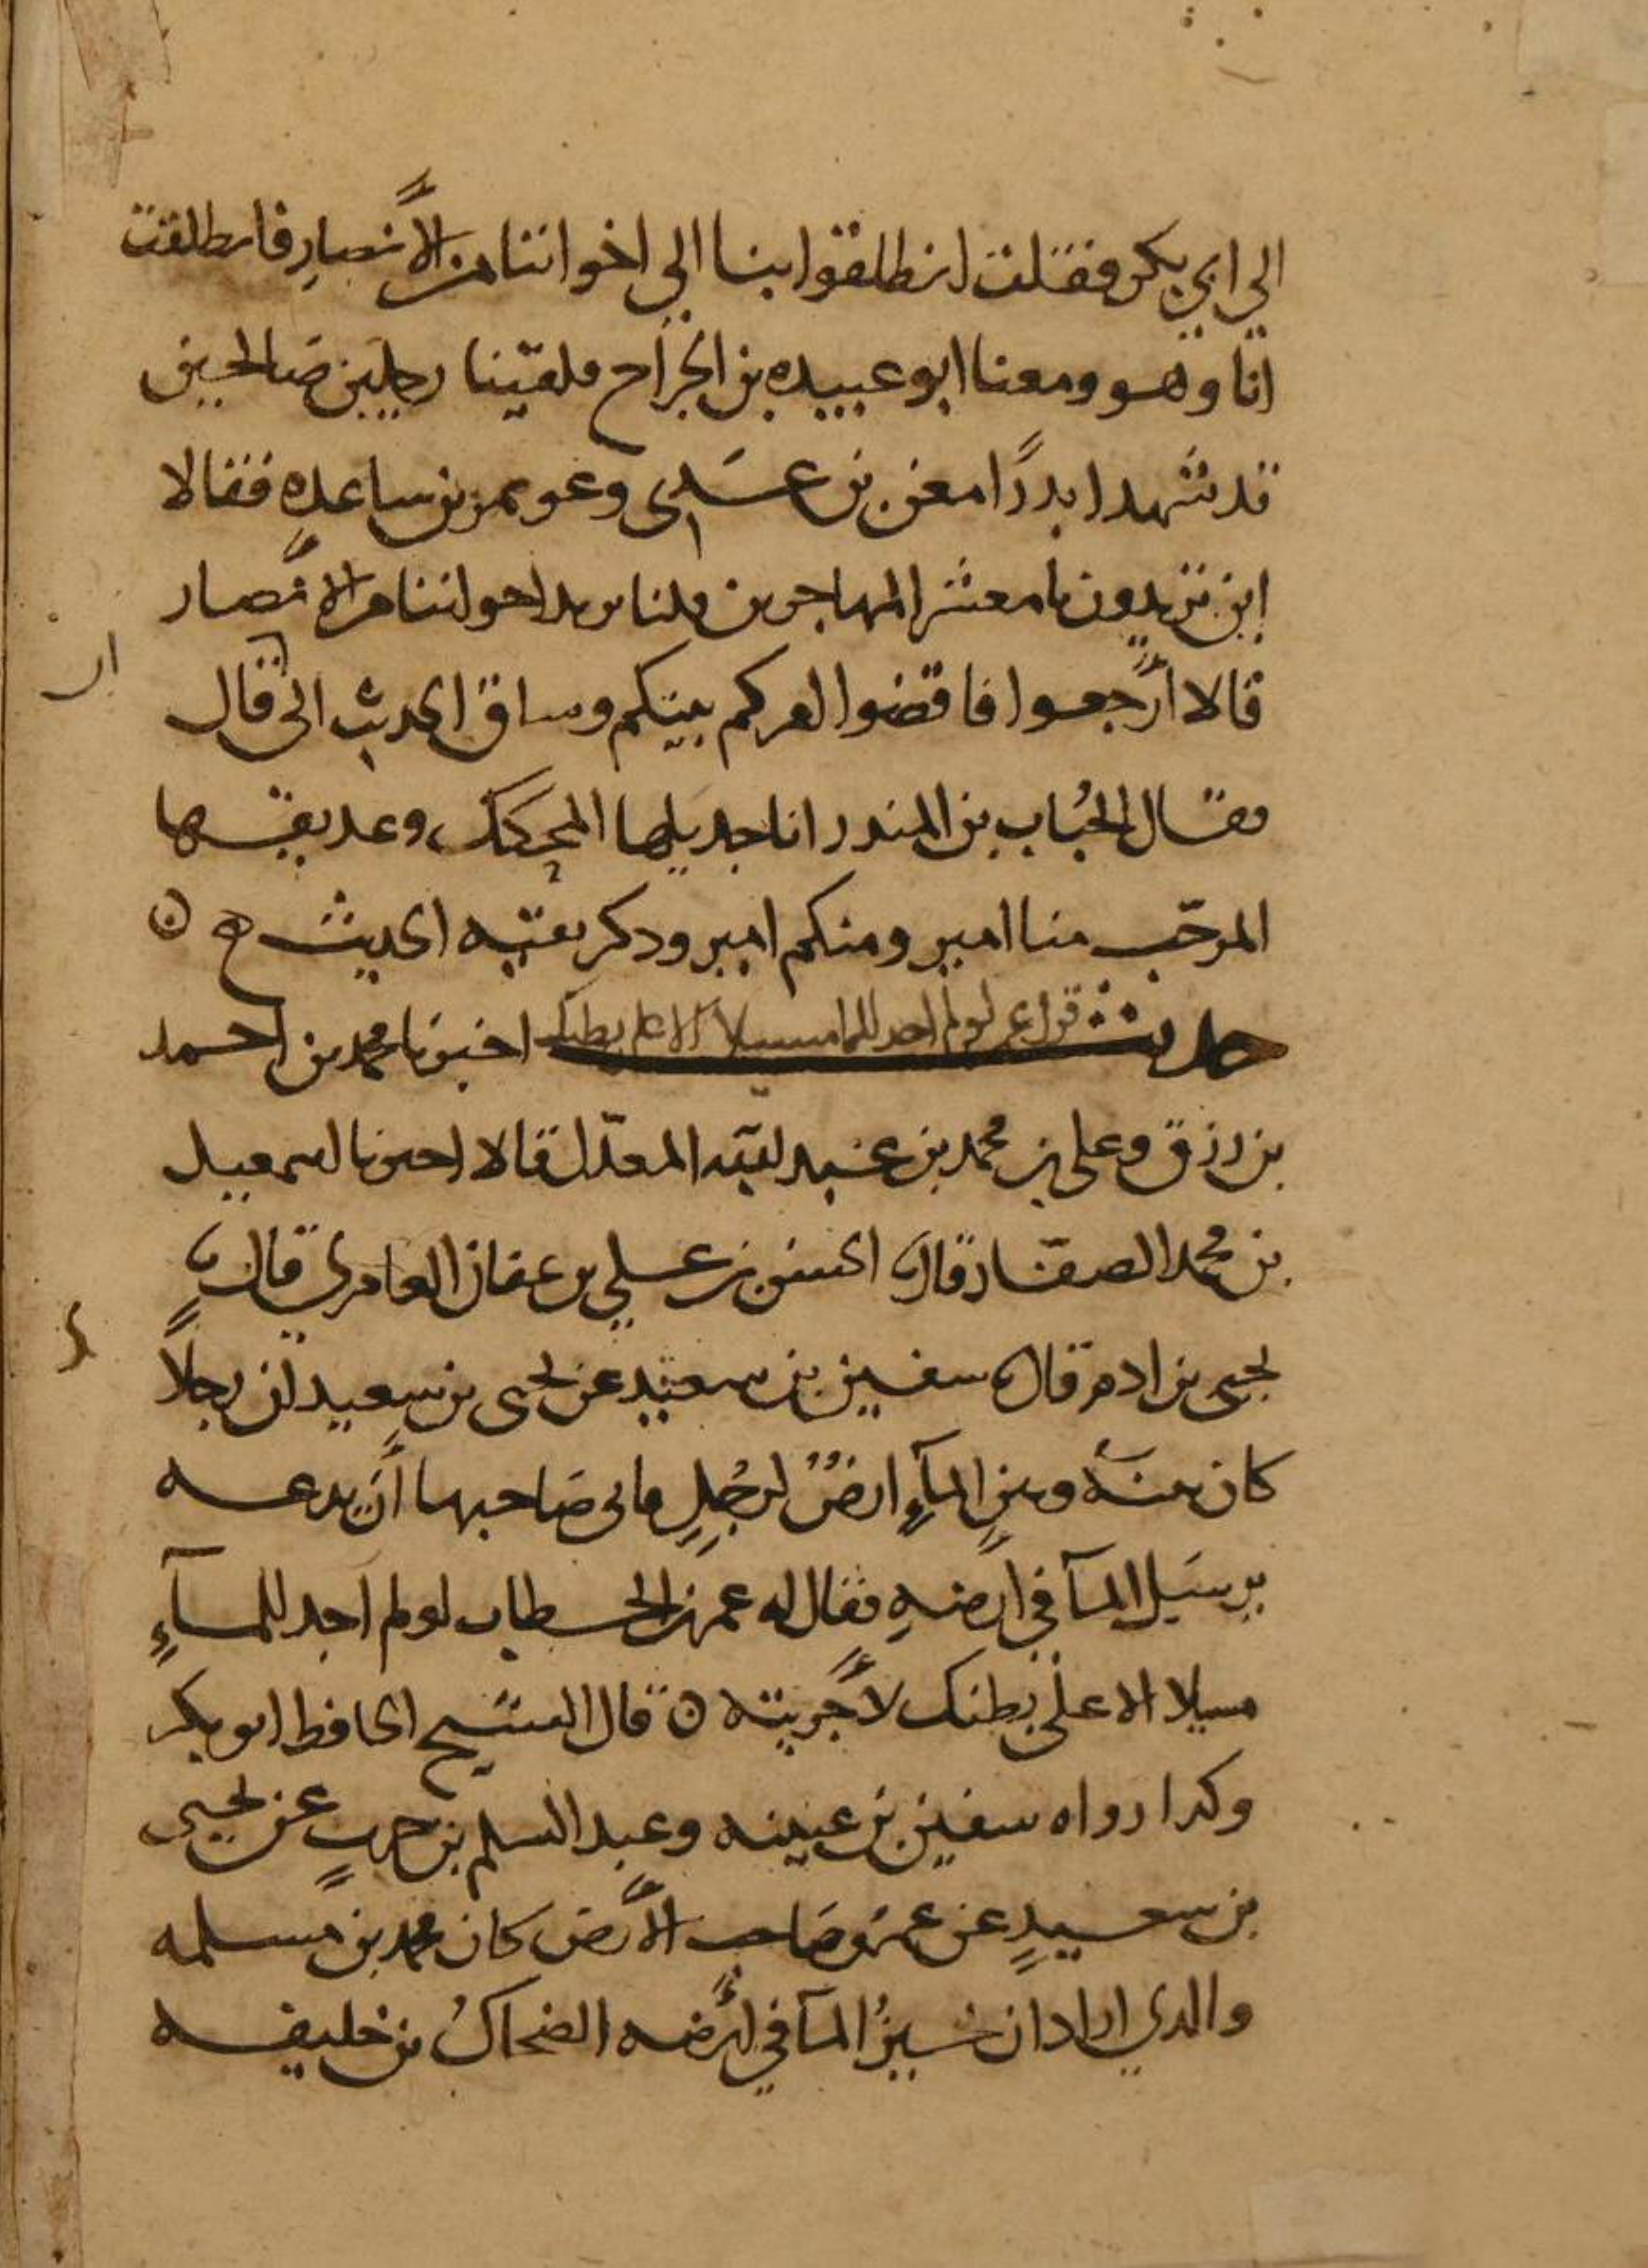 الي ابي بكر فقلت انطلقوا بنا الي اخواننا من الأنصار فانطلقت
انا وهو ومعنا ابو عبيده بن الجراح فلقينا رجلين صالحين
قد شهدا بدرًا معن بن عدي وعويمر بن ساعده فقالا
اين تريدون يا معشر المهاجرين قلنا نريد اخواننا من الأنصار
قالا أرجعوا فاقضوا امركم بينكم وساق الحديث الى قال
ان
فقال الحُباب بن المنذر انا جديلها المحكك وعديقها
المرجّب منا امير ومنكم امير وذكر بقيه الحديث
حديث قول عمر لو لم اجد للما مسيلا الا على بطنك اخبرنا محمد بن احمد
بن رزق وعلى بن محمد بن عبد الله المعدّل قالا اخبرنا اسمعيل
بن محمد الصفّار قال الحسن بن علي بن عفان العامري قال
يحيى بن ادم قال سفين بن سعيد عن يحيى بن سعيد ان رجلاً
كان بينه وبين المآءِ ارضٌ لرجُلٍ فابى صَاحبها أن يدعه
يرسَل المآ في ارضهِ فقال له عمر بن الخطاب لو لم اجد للمآءِ
مسيلا الا على بطنك لأجريته ٥ قال الشيخ الحافظ ابو بكر
وكدا رواه سفين بن عيينه وعبد السلم بن حربٍ عن يحيى
بن سعيدٍ عن عمر وصَاحب الأرض كان محمد بن مَسلمه
والدي اراد ان يسيرُ المآ في أرضه الضحاكُ بن خليفه